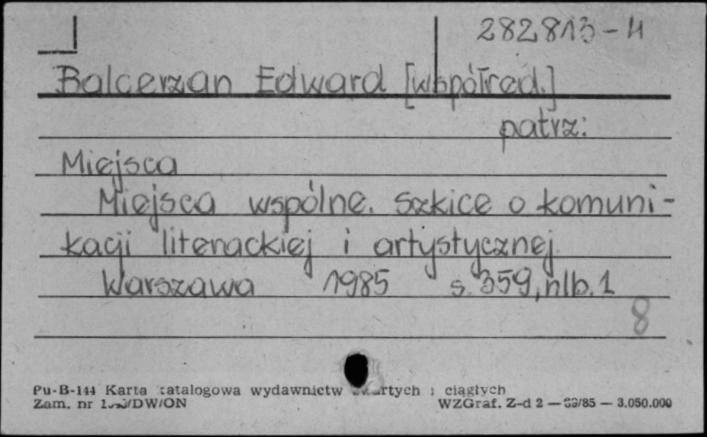 282813-II
Balcerzan Edward [współred.]
patrz:
Miejsca
Miejsca wspólne. Szkice o komuni-
kacji literackiej i artystycznej
Warszawa 1985 s. 359, nlb. 1
8
Pu-B-144 Karta katalogowa wydawnictw zwartych i ciągłych
Zam. nr /DW/ON WZGraf. Z-d 2 — /85 — 3.050.000